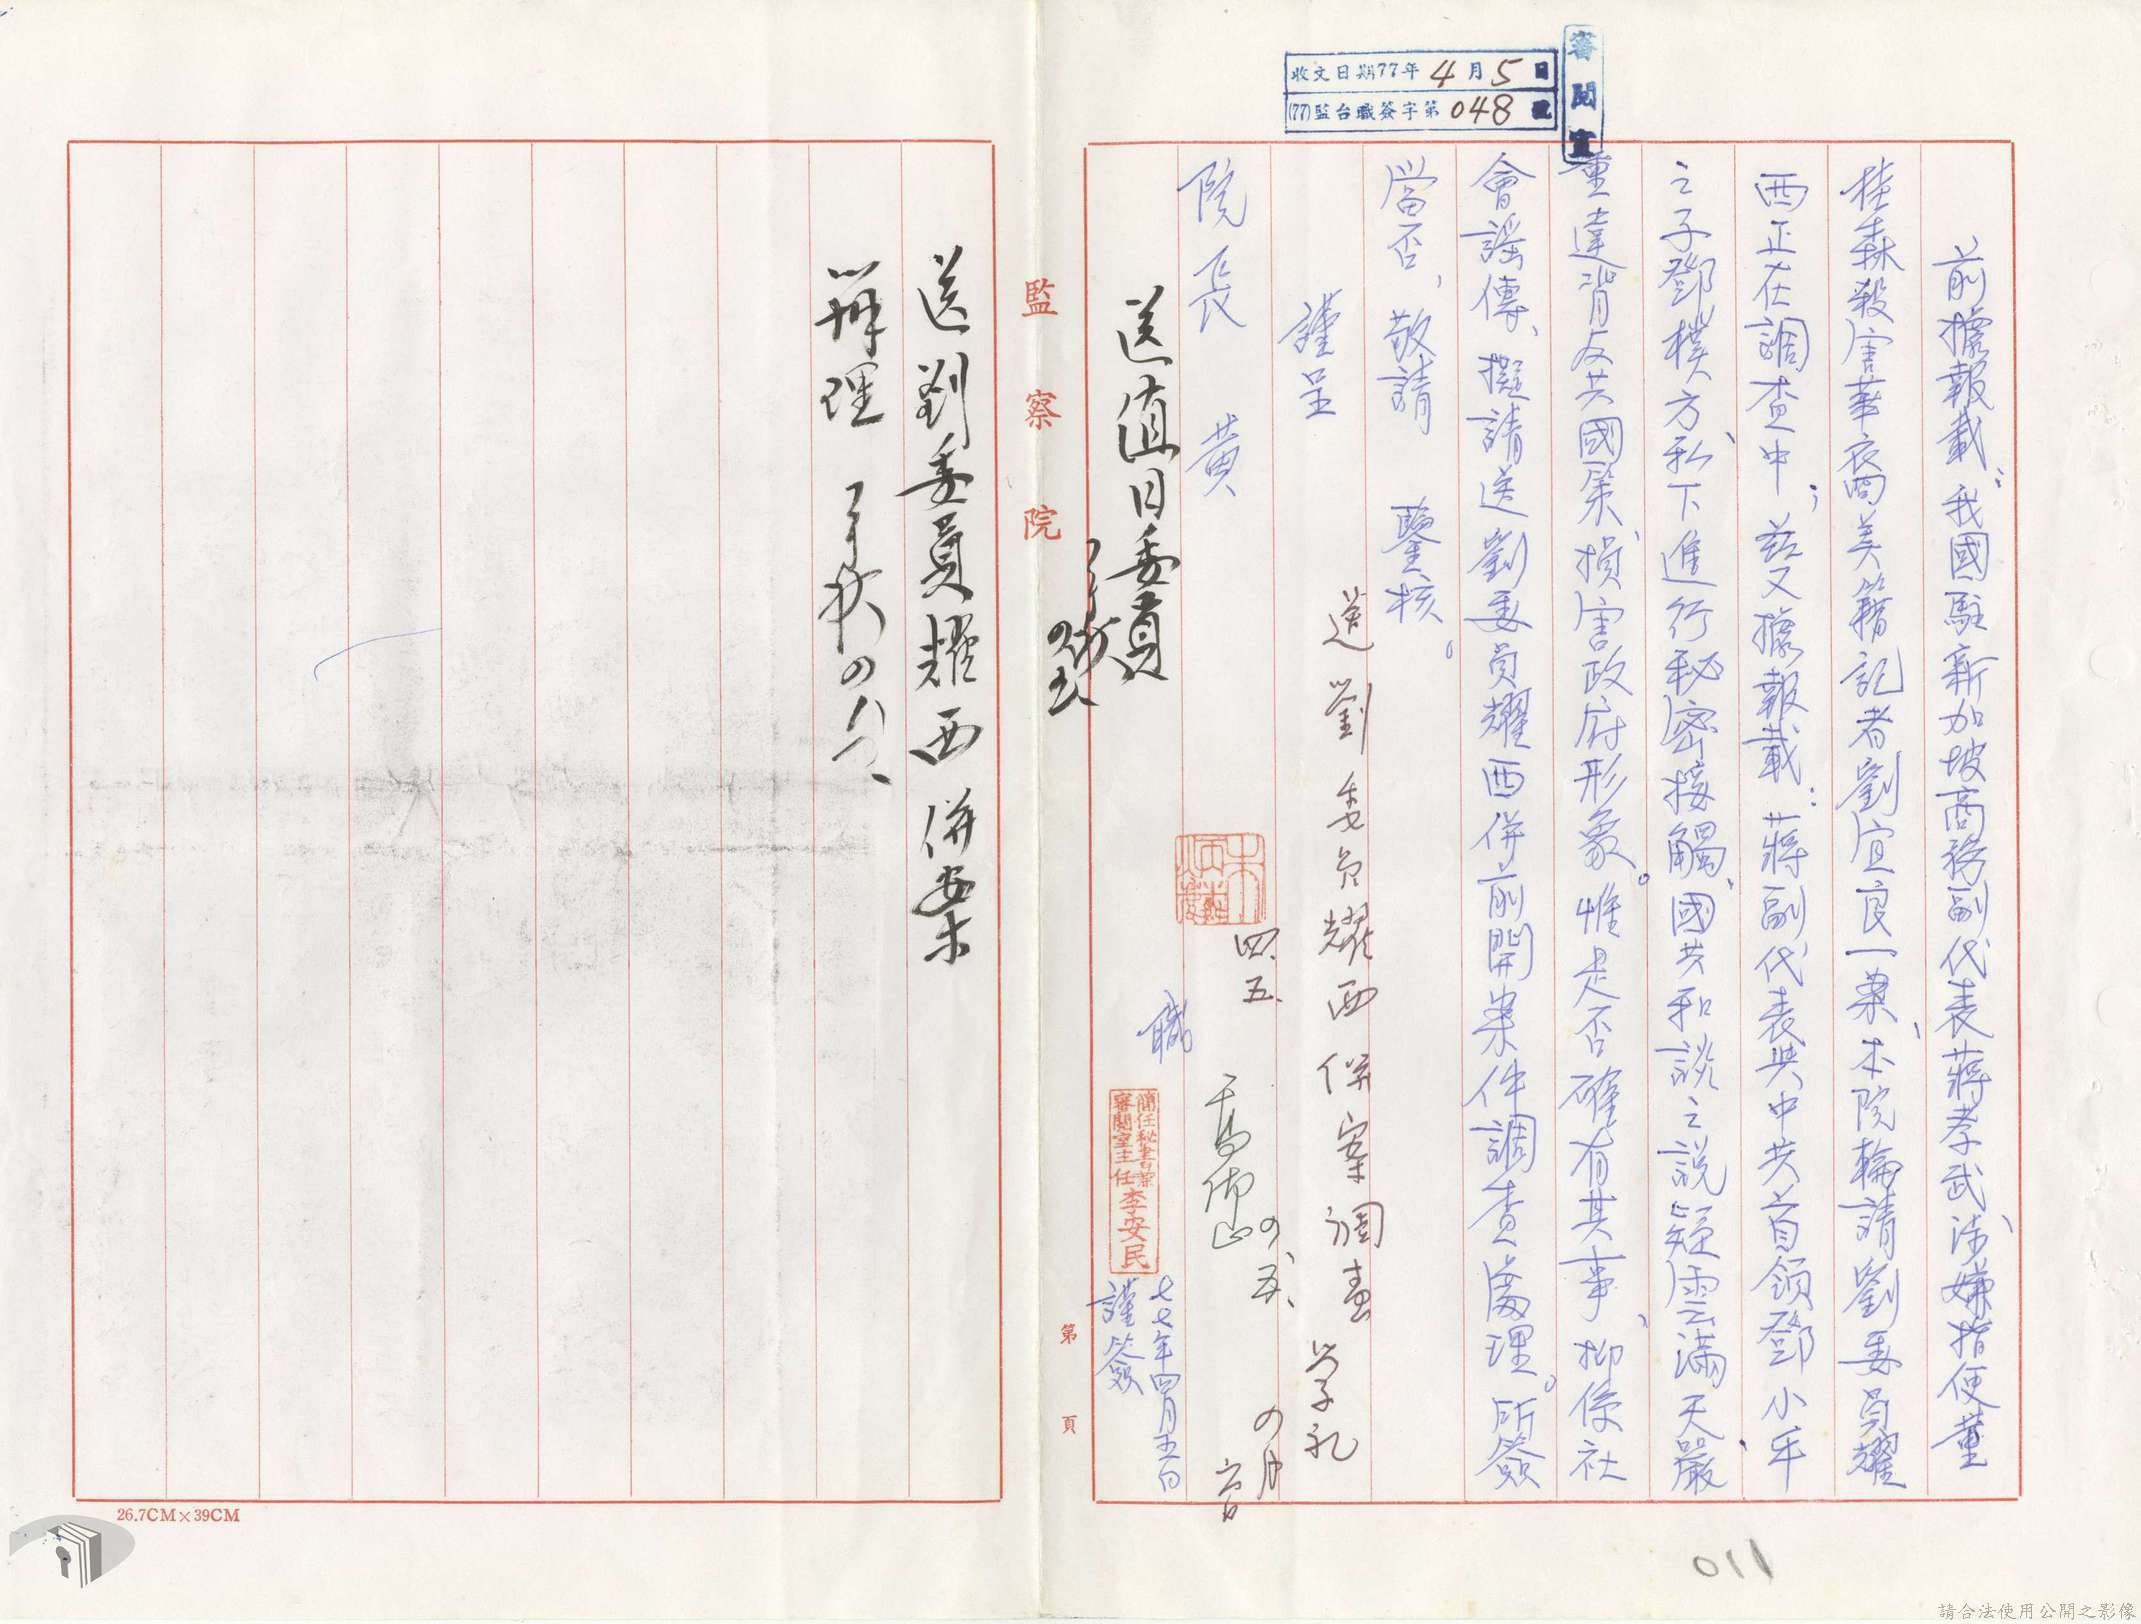 審閱室
收文日期77年4月5日
(77)監台職簽字第048號
前據報載：我國駐新加坡商務副代表蔣孝武、涉嫌指使董
桂森殺害華裔美籍記者劉宜良一案、本院輪請劉委員耀
西正在調查中；茲又據報載：蔣副代表與中共首領鄧小平
之子鄧樸方、私下進行秘密接觸、國共和談之說疑雲滿天、嚴
重違背反共國策、損害政府形象。惟是否確有其事、抑係社
會謠傳、擬請送劉委員耀西併前開案件調查處理。所簽
當否、敬請
鑒核。
謹呈
院長 黃
職
簡任秘書兼
審閱室主任 李安民
謹簽
七七年四月五日
送劉委員耀西併案調查
四.五.
送值日委員
監察院
第 頁
送劉委員耀西併案
辦理
26.7CM×39CM
011
請合法使用公開之影像